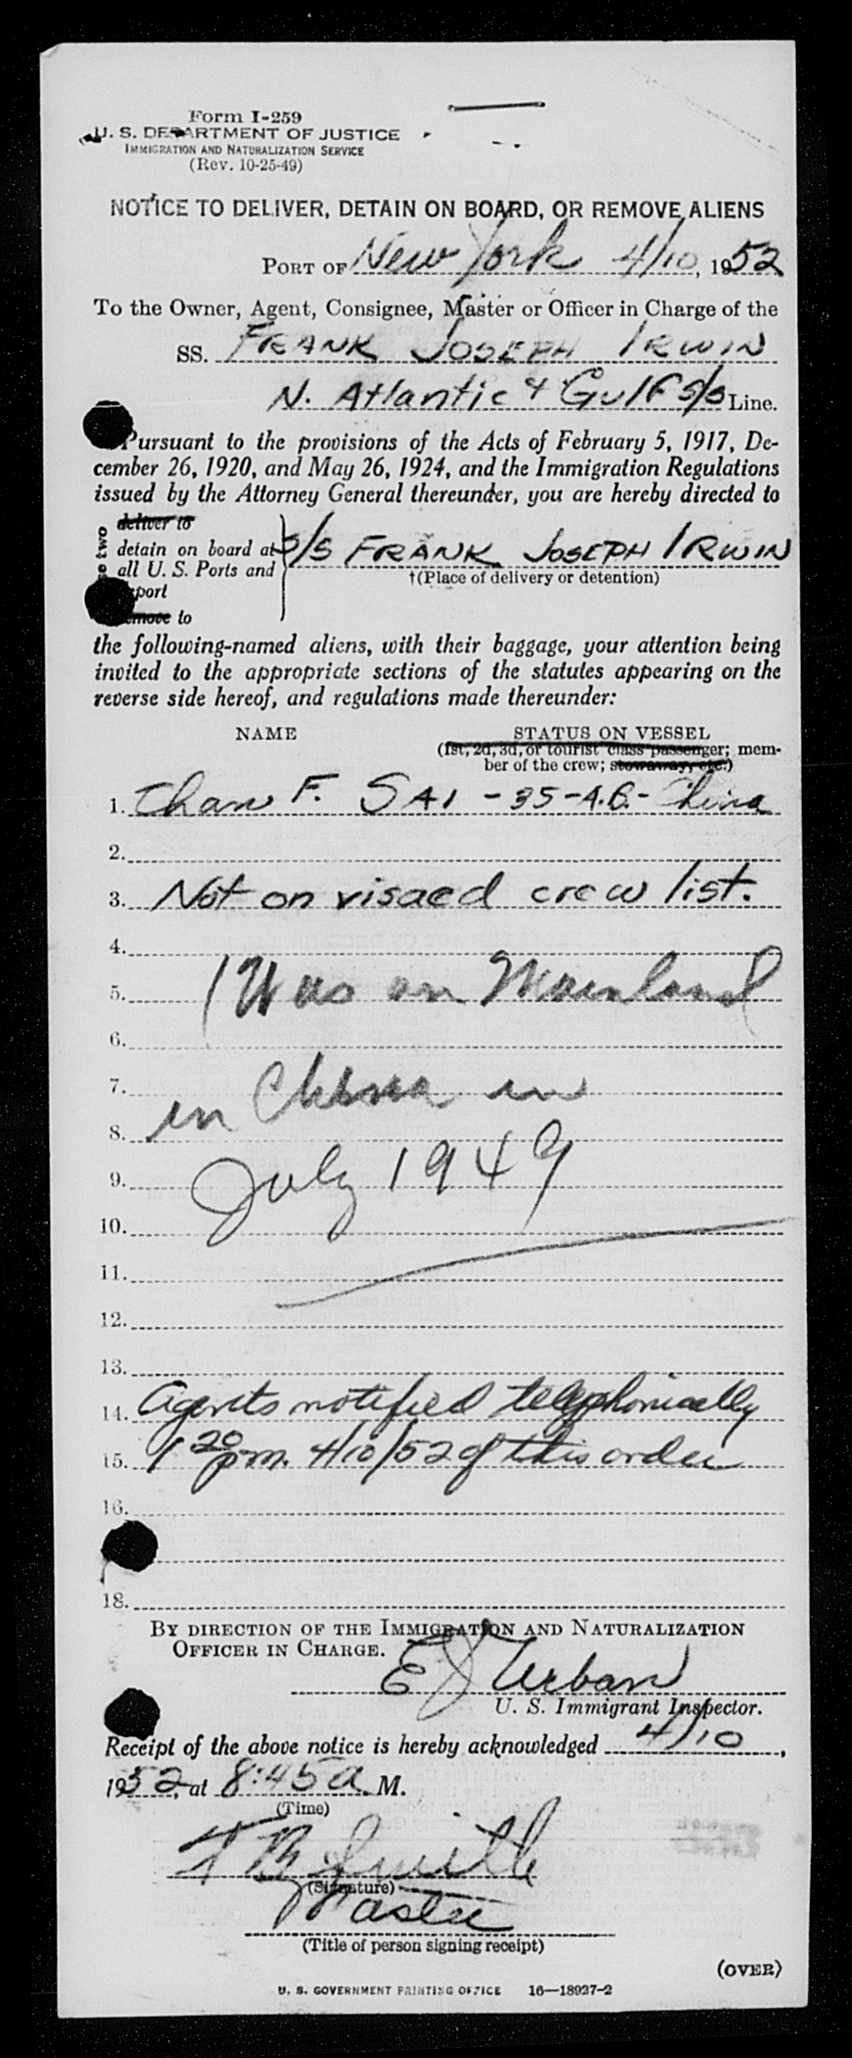 Form I-259
U. S. DEPARTMENT OF JUSTICE
IMMIGRATION AND NATURALIZATION SERVICE
(Rev. 10-25-49)
NOTICE TO DELIVER, DETAIN ON BOARD, OR REMOVE ALIENS
PORT OF New York 4/10, 1952
To the Owner, Agent, Consignee, Master or Officer in Charge of the
SS. FRANK JOSEPH IRWIN
N. Atlantic & Gulf S/S Line.
Pursuant to the provisions of the Acts of February 5, 1917, De-
cember 26, 1920, and May 26, 1924, and the Immigration Regulations
issued by the Attorney General thereunder, you are hereby directed to
deliver to
detain on board at S/S FRANK JOSEPH IRWIN
all U. S. Ports and †(Place of delivery or detention)
port
remove to
the following-named aliens, with their baggage, your attention being
invited to the appropriate sections of the statutes appearing on the
reverse side hereof, and regulations made thereunder:
NAME STATUS ON VESSEL
(1st, 2d, 3d, or tourist class passenger; mem-
ber of the crew; stowaway, etc.)
1. Chan F. SAI - 35 - A.B. - China
2.
3. Not on visaed crew list.
4.
5. (Was on Mainland
6.
7. in China in
8.
9. July 1949
10.
11.
12.
13.
14. Agents notified telephonically
15. 1 20 pm. 4/10/52 of this order
16.
18.
BY DIRECTION OF THE IMMIGRATION AND NATURALIZATION
OFFICER IN CHARGE.
E J Urban
U. S. Immigrant Inspector.
Receipt of the above notice is hereby acknowledged 4/10,
1952, at 8:45 A. M.
(Time)
Smith
(Signature)
Master
(Title of person signing receipt)
(OVER)
U. S. GOVERNMENT PRINTING OFFICE 16—18937-2